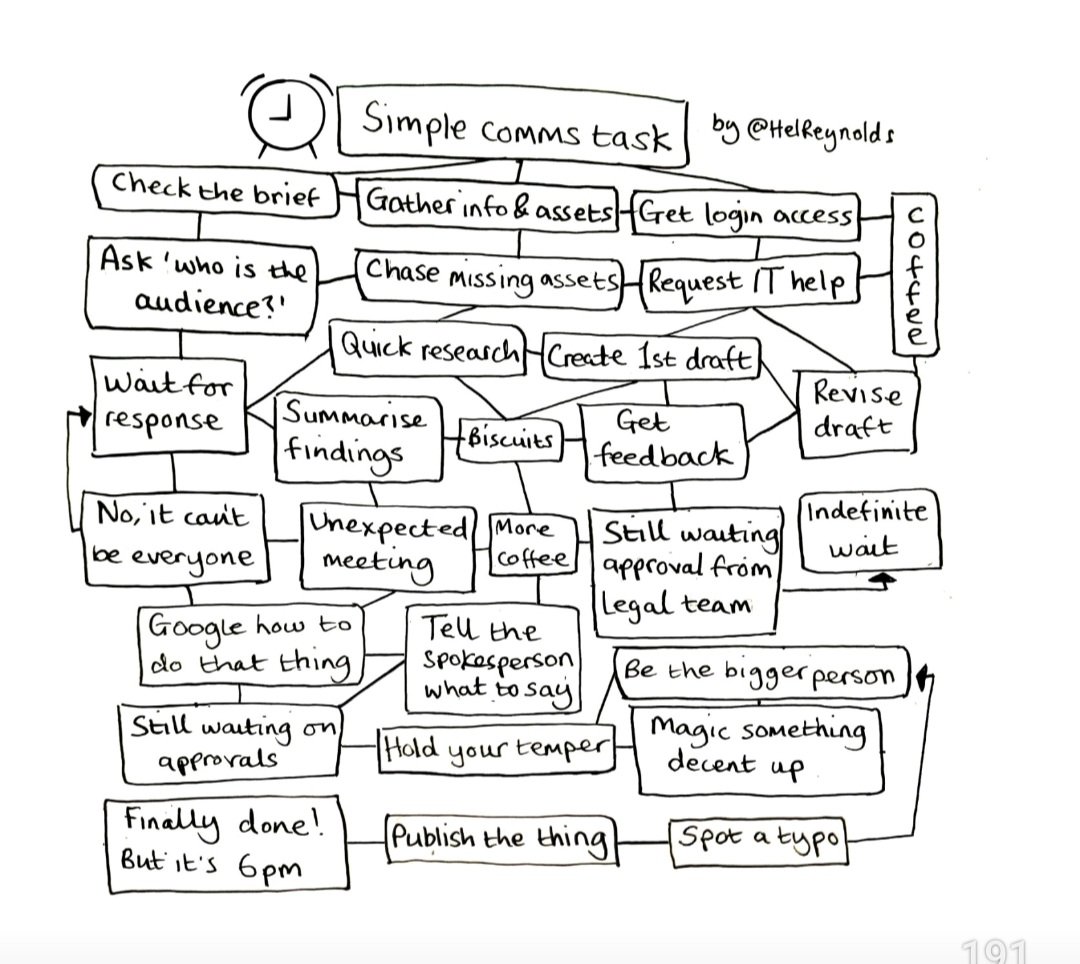 Simple comms task
by @HelReynolds
Check the brief
Gather info & assets
Get login access
coffee
Ask 'who is the
audience?'
Chase missing assets
Request IT help
Quick research
Create 1st draft
Wait for
response
Summarise
findings
Biscuits
Get
feedback
Revise
draft
No, it can't
be everyone
Unexpected
meeting
More
coffee
Still waiting
approval from
Legal team
Indefinite
wait
Google how to
do that thing
Tell the
spokesperson
what to say
Be the bigger person
Still waiting on
approvals
Hold your temper
Magic something
decent up
Finally done!
But it's 6pm
Publish the thing
Spot a typo
191